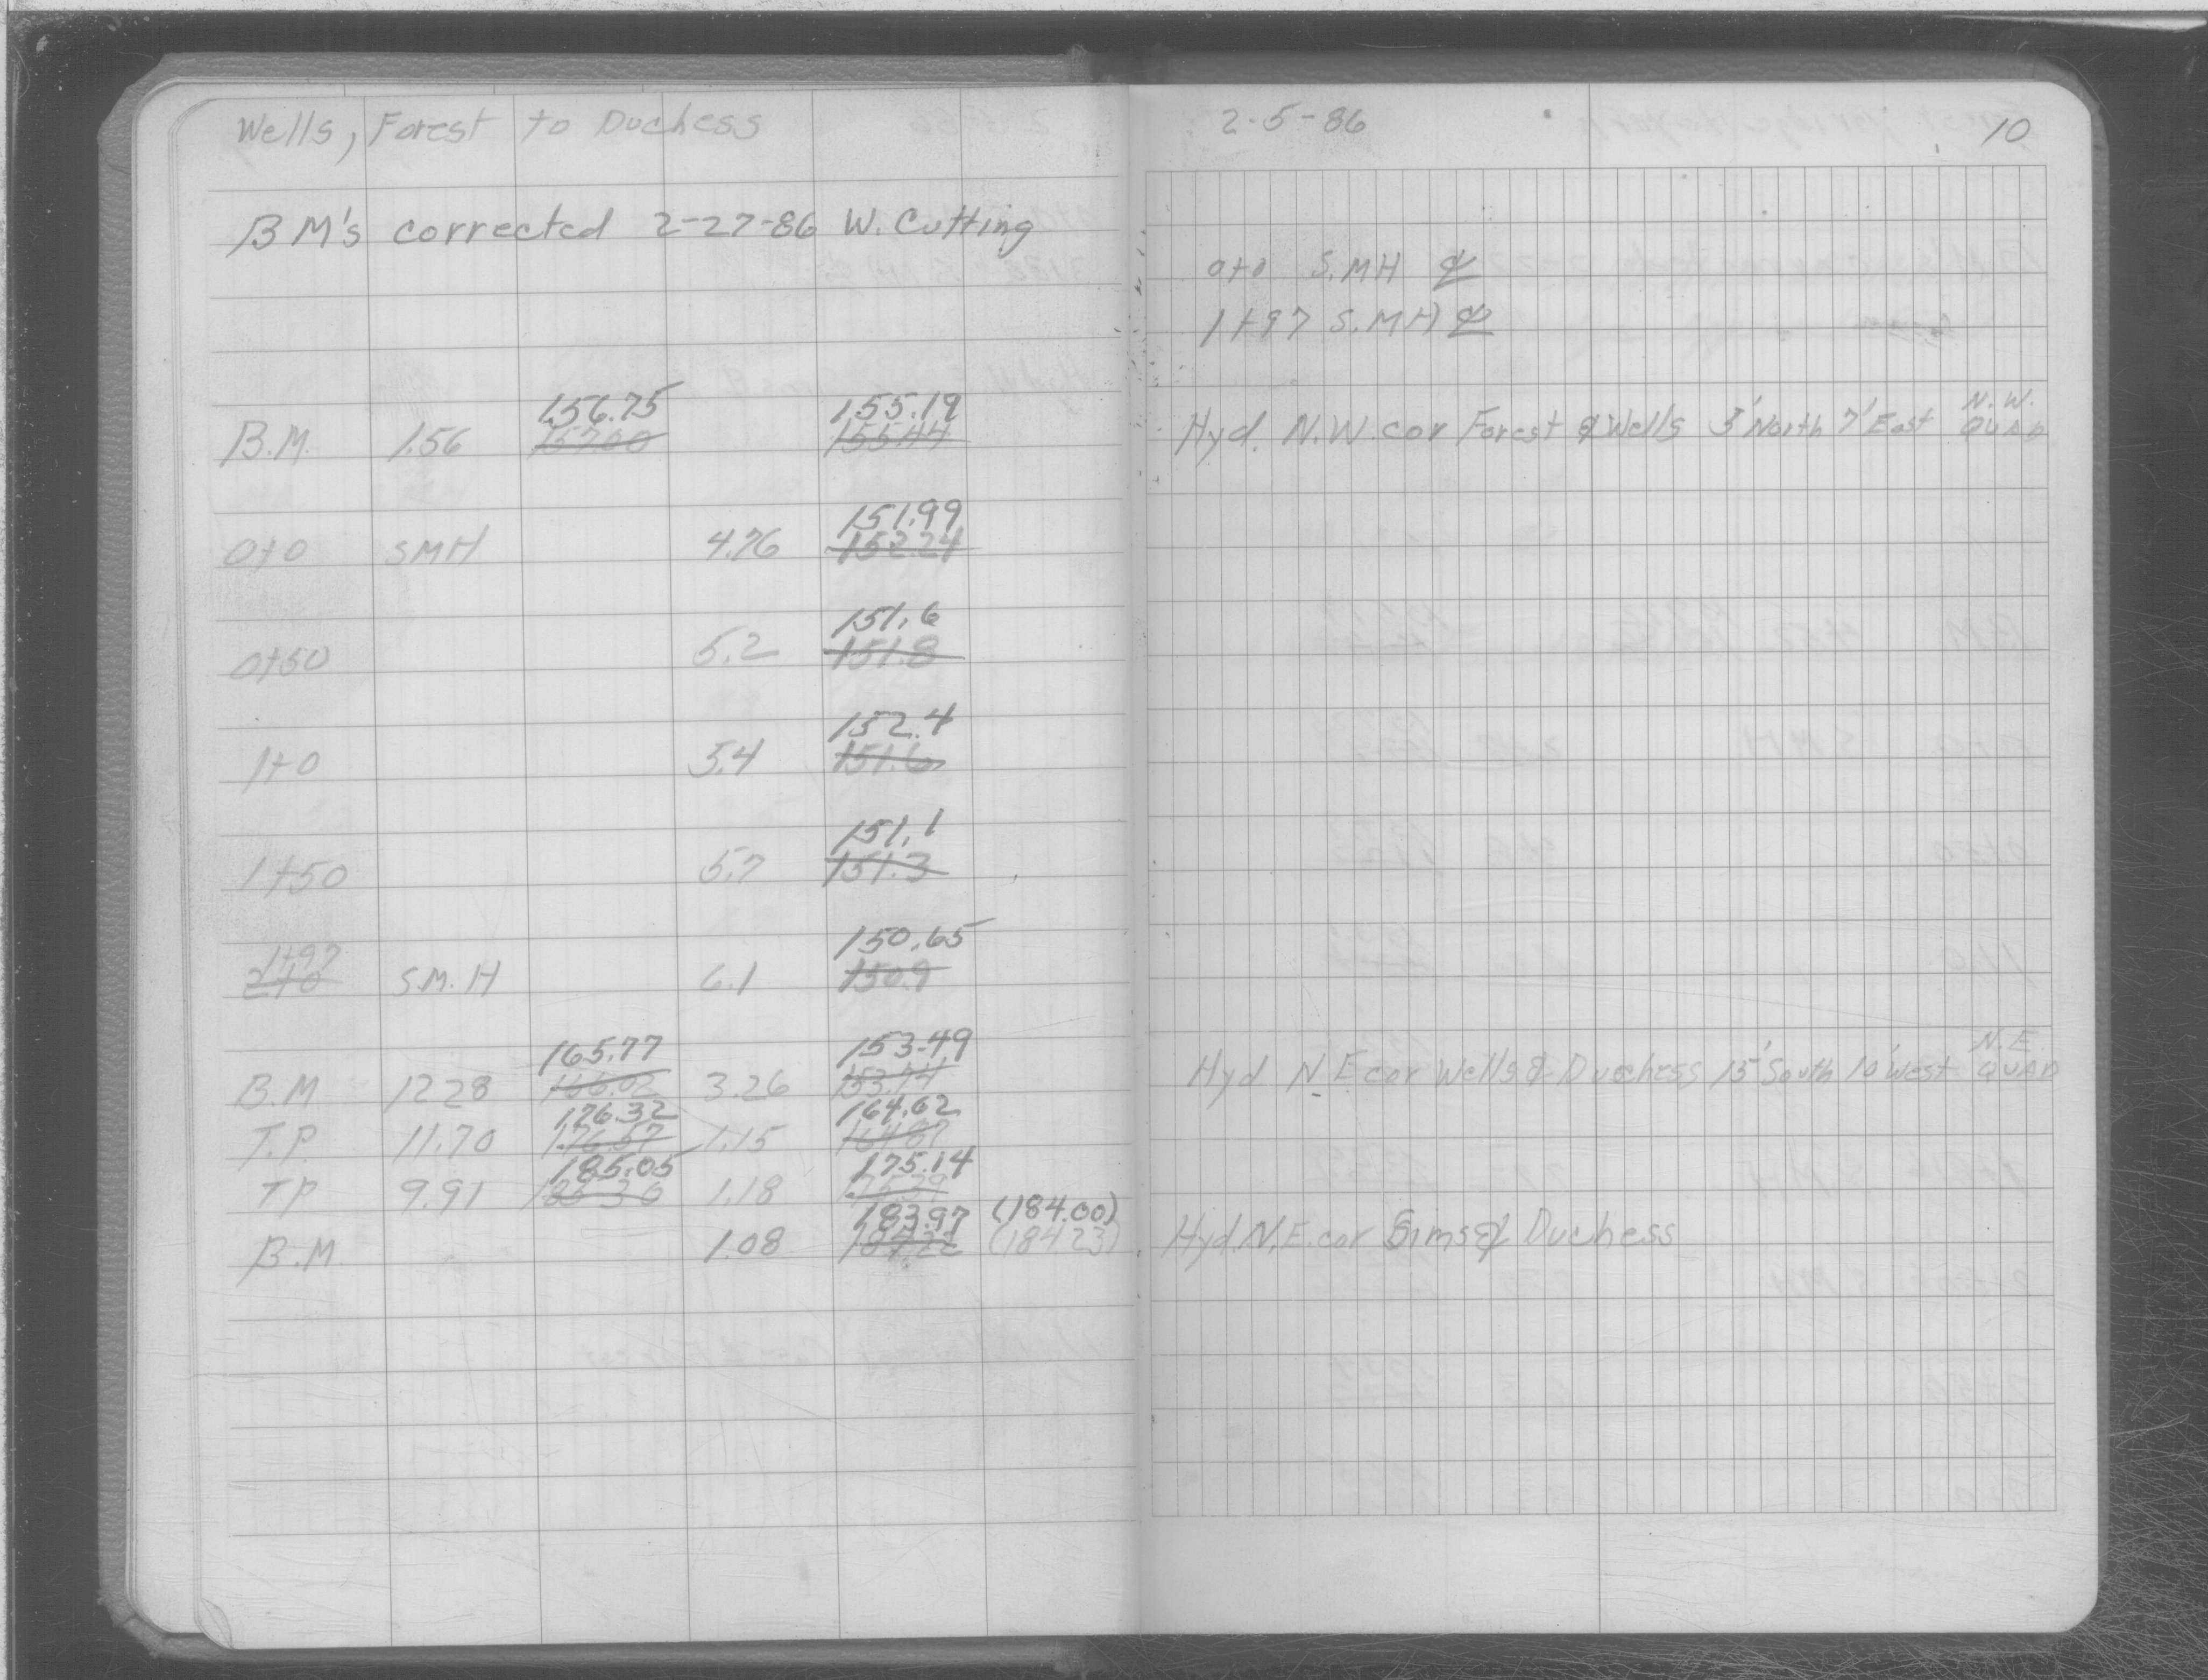 Wells, Forest to Duchess
BM's corrected 2-27-86 W. Cutting
156.75 155.19
B.M. 1.56 157.00 155.44
151.99
0+0 SMH 4.76 152.24
151.6
0+50 5.2 151.8
152.4
1+0 5.4 151.6
151.1
1+50 5.7 151.3
1+97 150.65
2+0 S.M.H 6.1 150.9
165.77 153.49
B.M 12 28 166.02 3.26 153.74
176.32 164.62
T.P. 11.70 176.57 1.15 164.87
185.05 175.14
T.P 9.91 185.30 1.18 175.39
183.97 (184.00)
B.M. 1.08 184.22 (184 23)
2-5-86 10
0+0 S.MH ⅊
1+97 S.MH ⅊
N.W.
Hyd. N.W. cor Forest & Wells 3' North 7' East QUAD
N.E
Hyd N.E cor Wells & Duchess 15' South 10' West QUAD
Hyd. N.E. cor Sims & Duchess